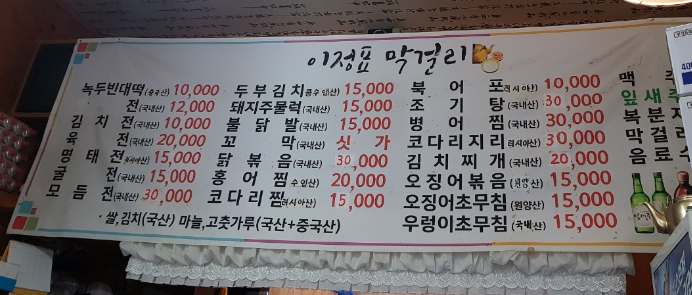 이정표 막걸리
녹두빈대떡(중국산) 10,000
전(국내산) 12,000
김치전(국내산) 10,000
육전(국내산) 20,000
명태전(러시아산) 15,000
굴전(국내산) 15,000
모듬전(국내산) 30,000
두부김치 15,000
돼지주물럭(국내산) 15,000
불닭발(국내산) 15,000
꼬막(국내산) 싯가
닭볶음(국내산) 30,000
홍어찜(수입산) 20,000
코다리찜(러시아산) 15,000
북어포(러시아산) 10,000
조기탕(국내산) 30,000
병어찜(국내산) 30,000
코다리지리(러시아산) 30,000
김치찌개(국내산) 20,000
오징어볶음(원양산) 15,000
오징어초무침(원양산) 15,000
우렁이초무침(국내산) 15,000
맥주
잎새주
복분자
막걸리
음료수
· 쌀,김치(국산) 마늘,고춧가루(국산+중국산)